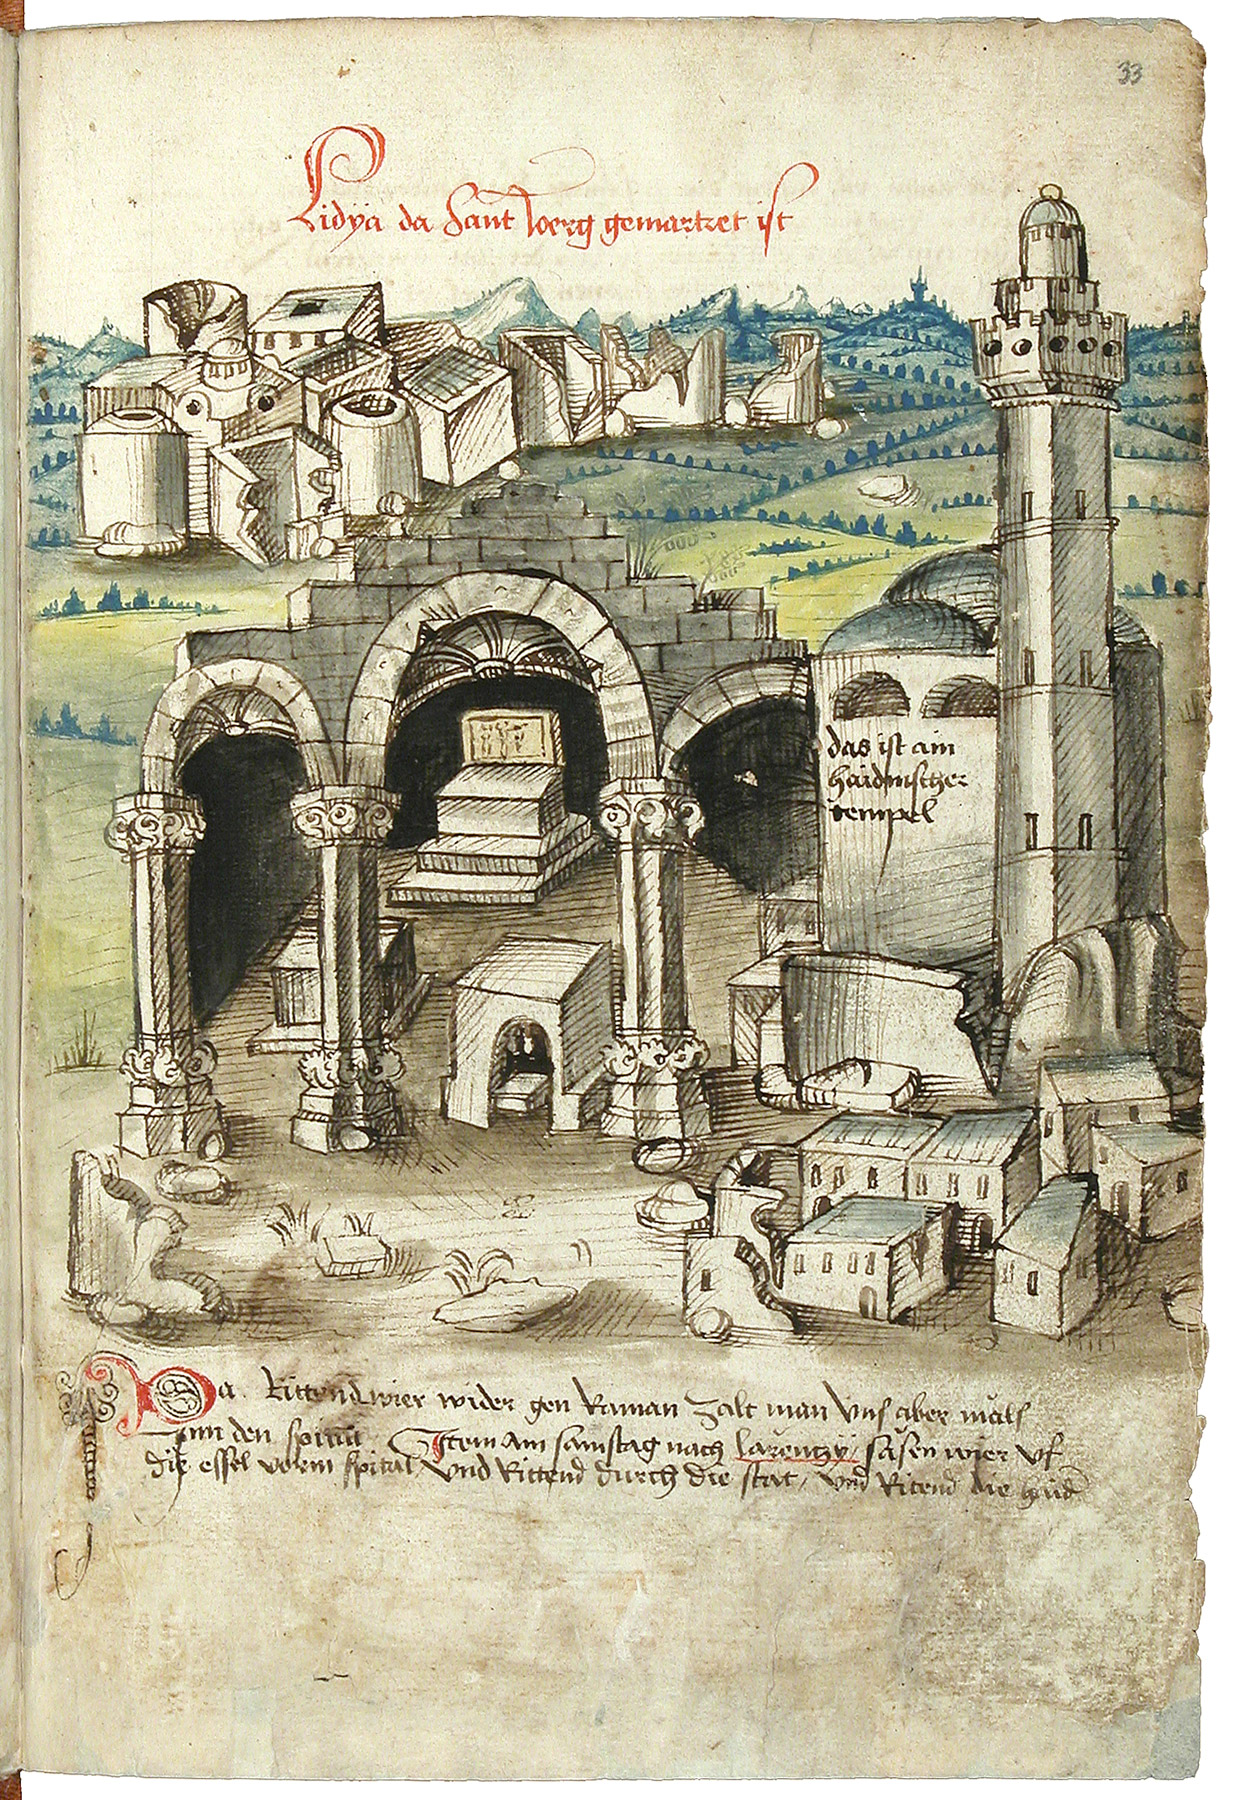 33
Lidya da Sant Joerg gemartret ist
das ist ain
haidnischer
tempel
Da Rittend wier wider gen Raman zalt man vnß aber mals
Inn den spittal Item am samstag nach larentzÿ sasen wier vf
die essel vorm spital / vnd Rittend durch die stat / vnd Ritend die